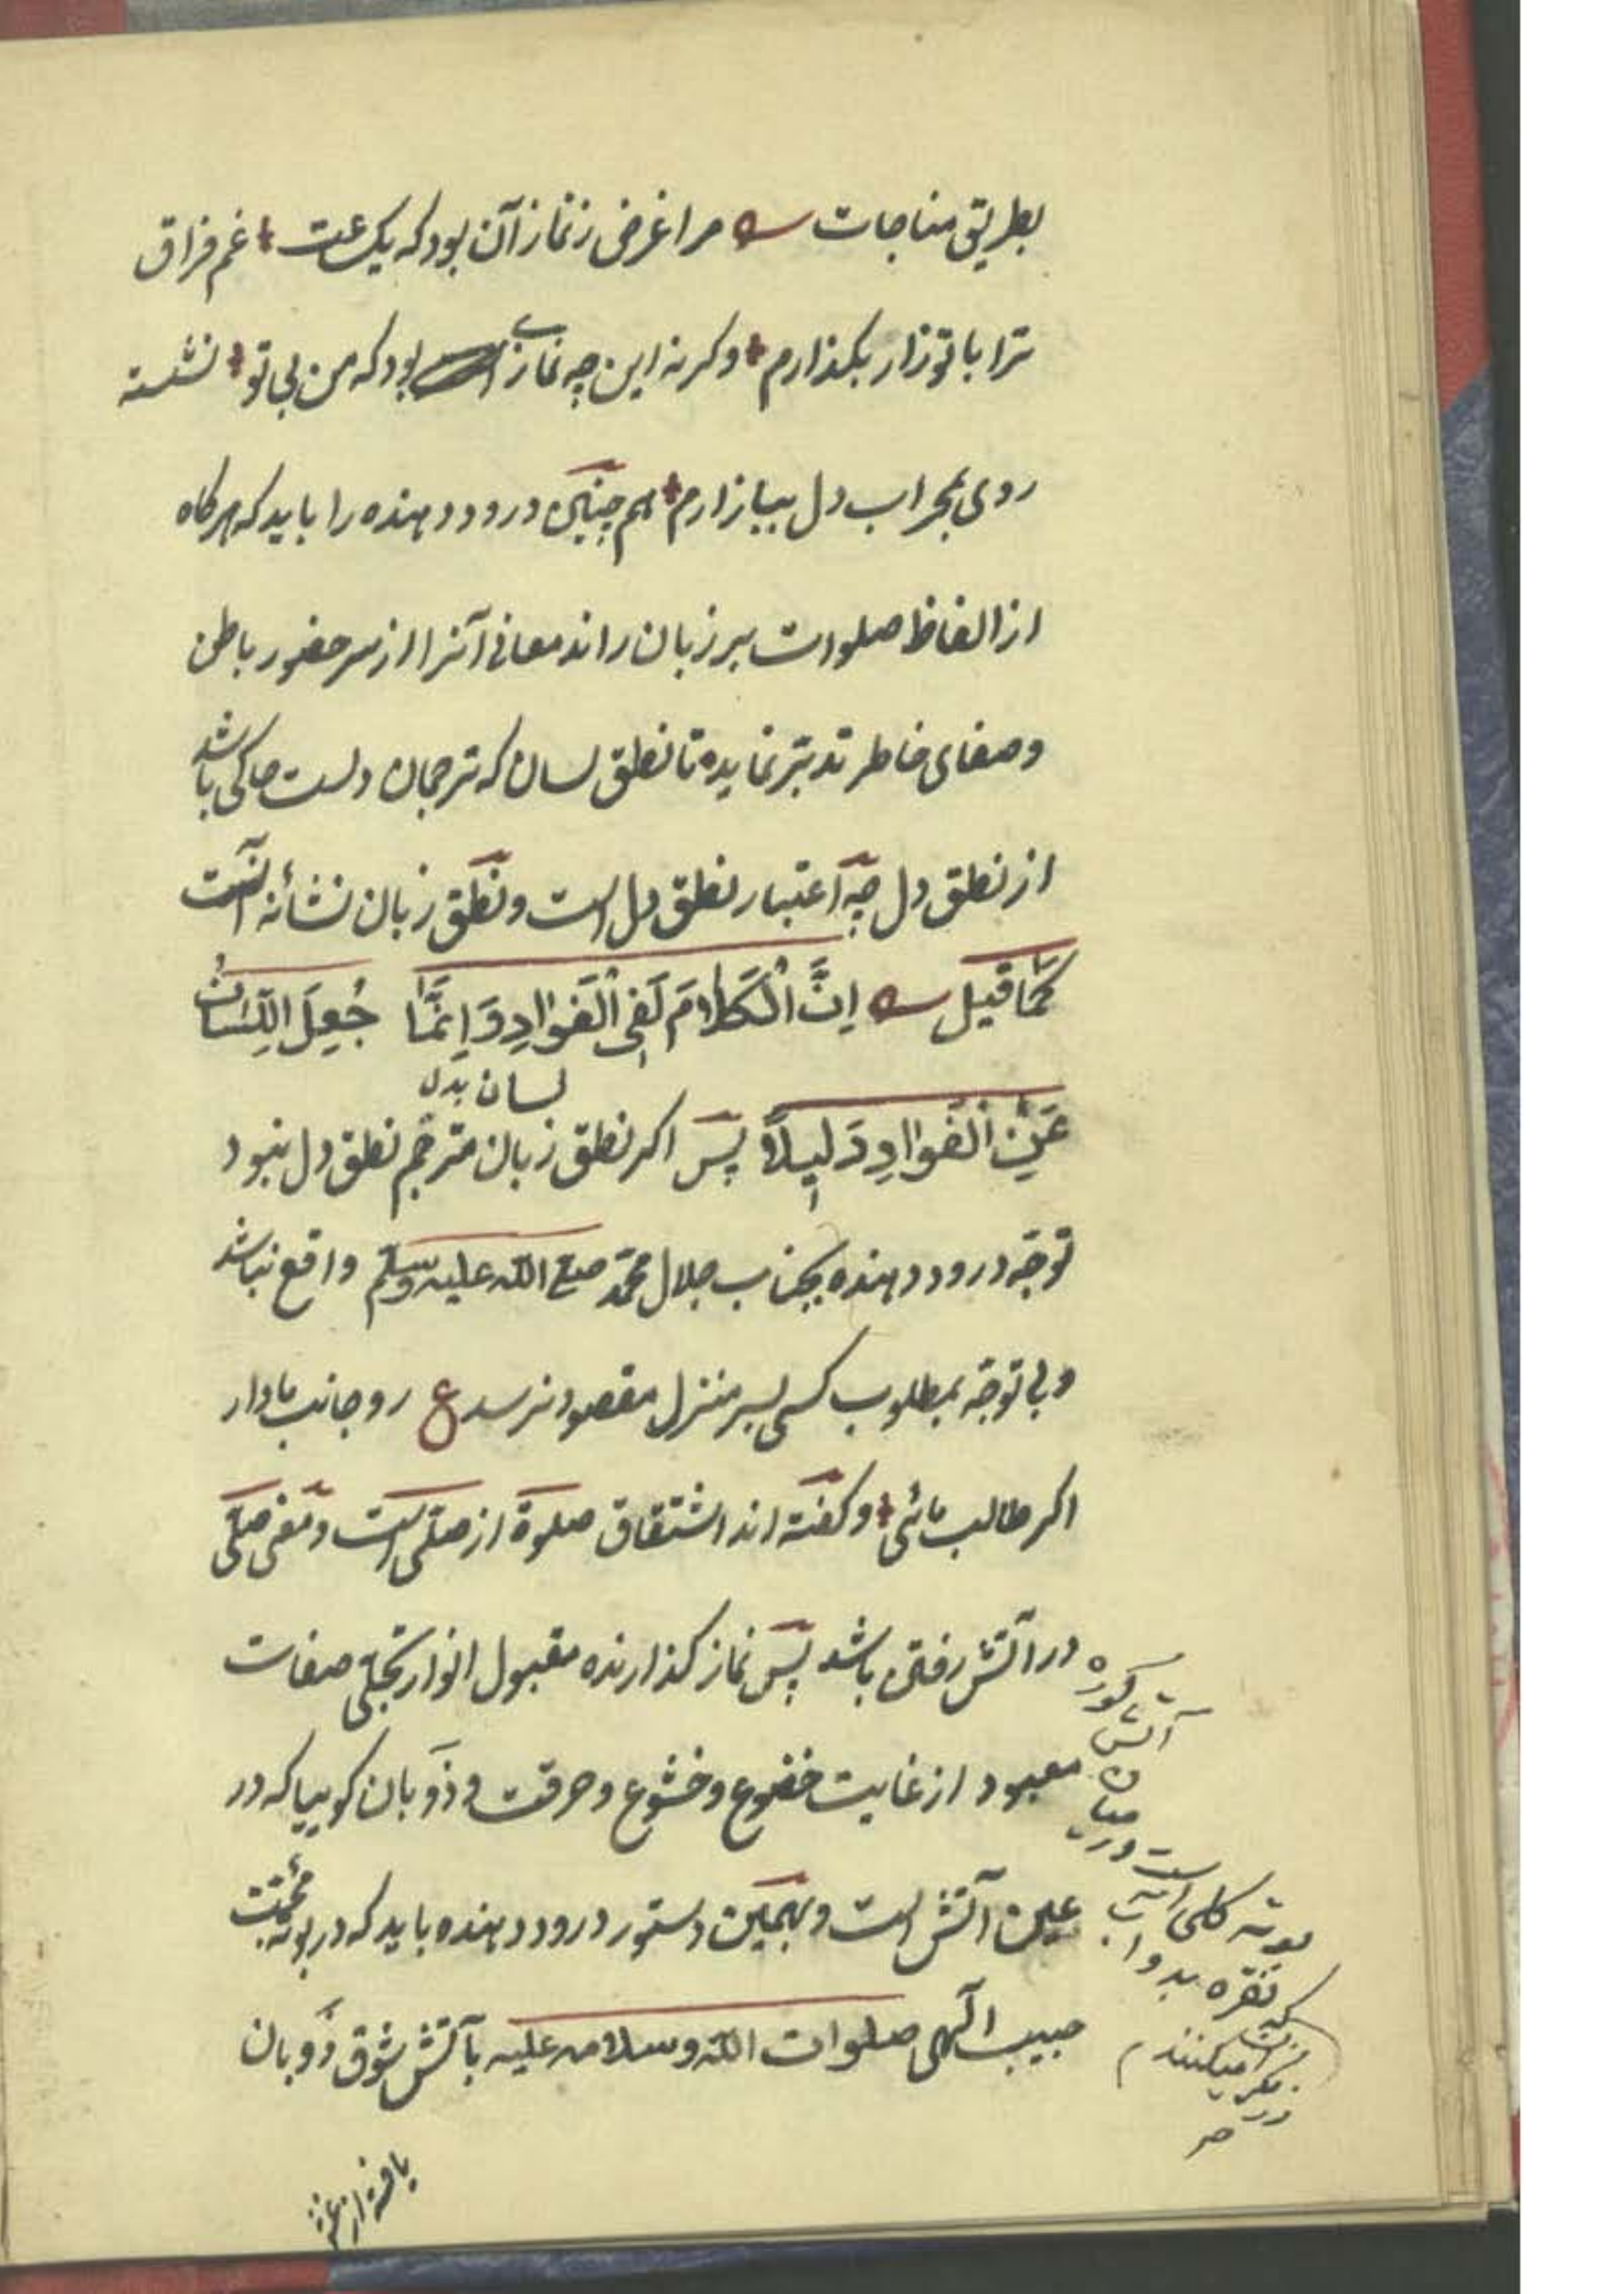 بطریق مناجات مرا غرض ز نماز آن بود که یک ساعت غم فراق
ترا با تو زار بکذارم وکرنه این چه نمازی بود که من بی تو نشسته
روی بمحراب دل ببازارم هم چنین درود دهنده را باید که هر کاه
از الفاظ صلوات بر زبان راند معانی آنرا از سر حضور باطن
وصفای خاطر تدبّر نماید تا نطق لسان که ترجمان دلست حاکی باشد
از نطق دل چه اعتبار نطق دل است ونطق زبان نشأنه آنست
کَمَا قیل اِنَّ الْکَلامَ لَفِی الْفَوادِ وَاِنَّمَا جُعِلَ اللِّسَانُ
لسان بدل
عَنِ الْفَوادِ دَلیِلاً پس اکر نطق زبان مترجّم نطق دل نبود
توجّه درود دهنده بجناب جلال محمّد صلی اللّه علیه وسلّم واقع نباشد
وبی توجّه بمطلوب کسی بسر منزل مقصود نرسد ع رو جانب ما دار
اکر طالب مائی وکفته اند اشتقاق صلوة از صلّی است ومعنی صلّی
در آتش رفتن باشد پس نماز کذارنده مقبول انوار تجلّی صفات
معبود از غایت خضوع وخشوع وحرقت وذوبان کوییا که در
عین آتش است وبهمین دستور درود دهنده باید که در بوتهٔ محبّت
حبیب الهی صلوات اللّه وسلامه علیه بآتش شوق ذوبان
بوته کلی است درمیان آتش کوره
نقره بدو آب
میکنند
یافته از غش